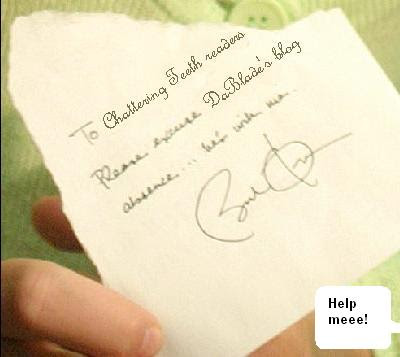 To Chattering Teeth readers
Please excuse DaBlade's blog
absence... he's with me.
Help
meee!